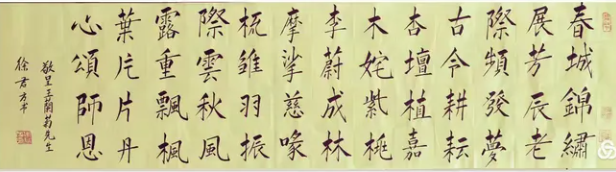 春城錦繡
展芳辰老
際頻發夢
古今耕耘
杏壇植嘉
木姹紫桃
李蔚成林
摩挲慈喙
梳雛羽振
際雲秋風
露重飄楓
葉片片丹
心頌師恩
敬呈王蘭先生
徐君